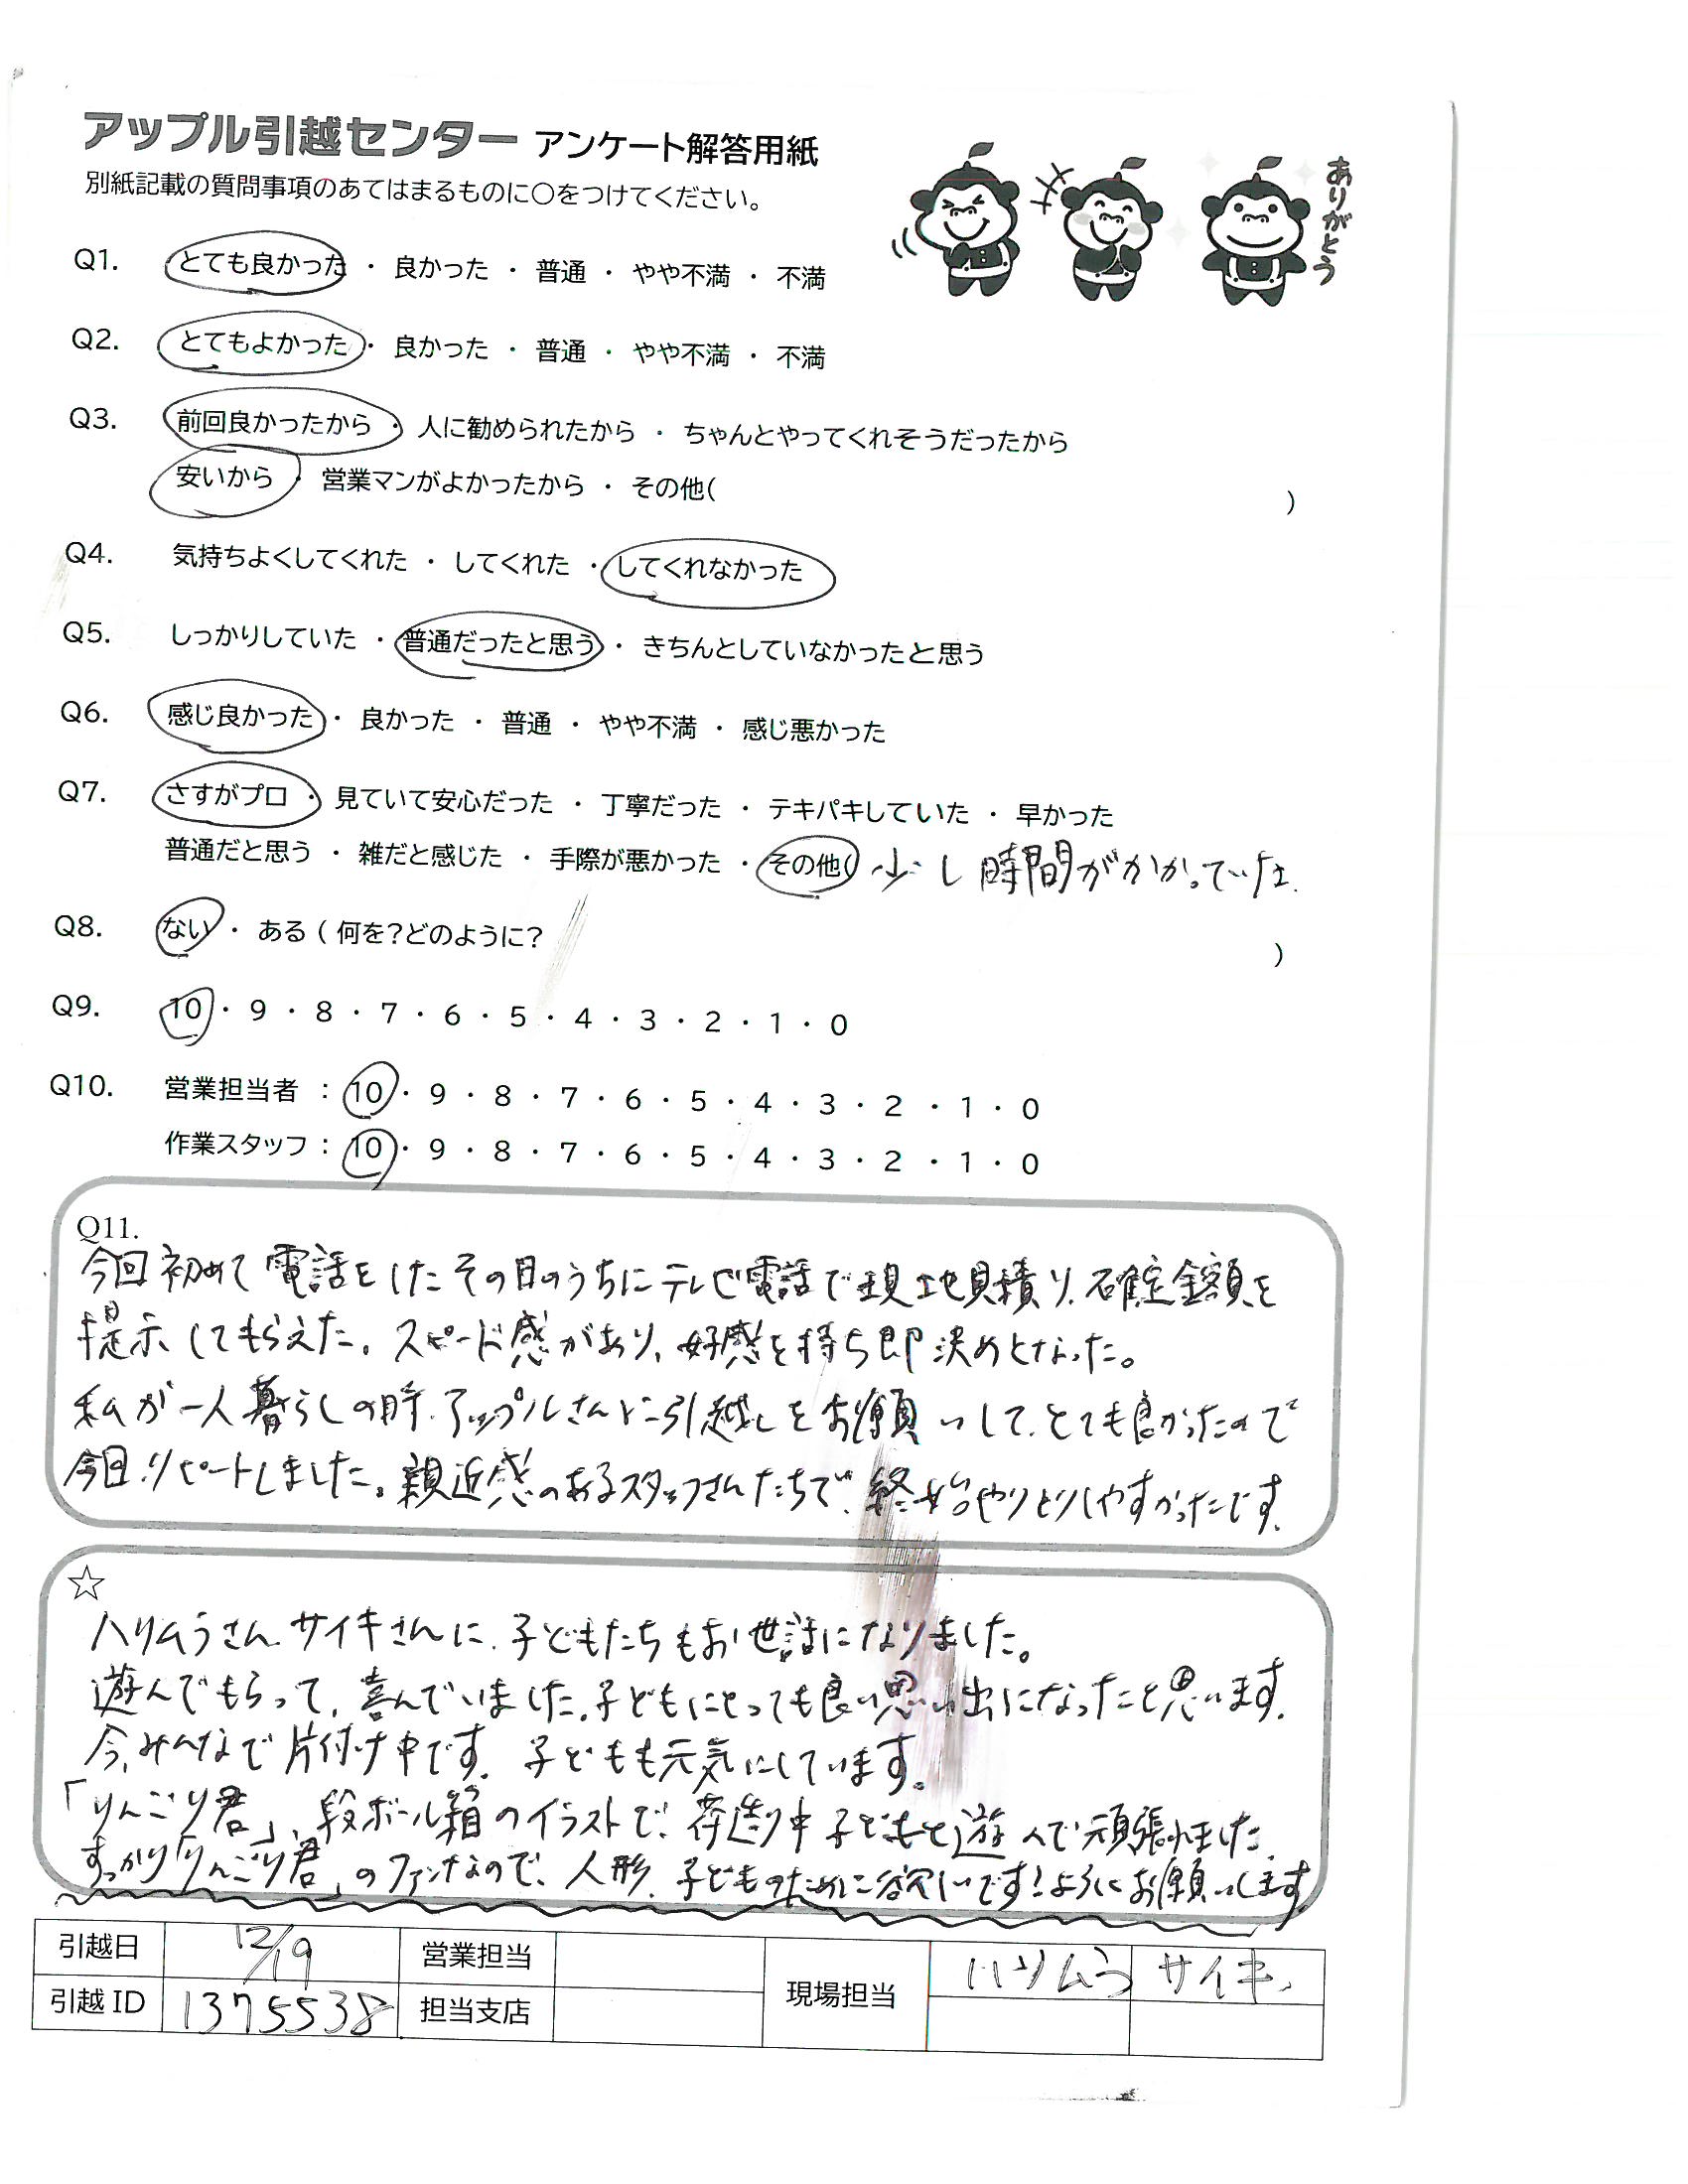 アップル引越センター アンケート解答用紙
別紙記載の質問事項のあてはまるものに〇をつけてください。
ありがとう
Q1. とても良かった ・ 良かった ・ 普通 ・ やや不満 ・ 不満
Q2. とてもよかった ・ 良かった ・ 普通 ・ やや不満 ・ 不満
Q3. 前回良かったから ・ 人に勧められたから ・ ちゃんとやってくれそうだったから
安いから ・ 営業マンがよかったから ・ その他( )
Q4. 気持ちよくしてくれた ・ してくれた ・ してくれなかった
Q5. しっかりしていた ・ 普通だったと思う ・ きちんとしていなかったと思う
Q6. 感じ良かった ・ 良かった ・ 普通 ・ やや不満 ・ 感じ悪かった
Q7. さすがプロ ・ 見ていて安心だった ・ 丁寧だった ・ テキパキしていた ・ 早かった
普通だと思う ・ 雑だと感じた ・ 手際が悪かった ・ その他( 少し時間がかかっていた.
Q8. ない ・ ある ( 何を?どのように? )
Q9. 10 ・ 9 ・ 8 ・ 7 ・ 6 ・ 5 ・ 4 ・ 3 ・ 2 ・ 1 ・ 0
Q10. 営業担当者 : 10 ・ 9 ・ 8 ・ 7 ・ 6 ・ 5 ・ 4 ・ 3 ・ 2 ・ 1 ・ 0
作業スタッフ : 10 ・ 9 ・ 8 ・ 7 ・ 6 ・ 5 ・ 4 ・ 3 ・ 2 ・ 1 ・ 0
Q11.
今回初めて電話をしたその日のうちにテレビ電話で現地見積り、確定金額を
提示してもらえた。スピード感があり、好感を持ち即決めとなった。
私が一人暮らしの時、アップルさんに引越しをお願いして、とても良かったので
今回リピートしました。親近感のあるスタッフさんたちで、終始やりとりしやすかったです.
☆
ハツムラさん、サイキさんに、子どもたちもお世話になりました。
遊んでもらって、喜んでいました。子どもにとっても良い思い出になったことと思います.
今、みんなで片付け中です. 子どもも元気にしています。
「りんごり君」、段ボール箱のイラストで、荷造り中子どもと遊んで頑張れました.
すっかり「りんごり君」のファンなので、人形、子どものために欲しいです!ようにお願いします
引越日 12/19 営業担当 現場担当 ハツムラ サイキ
引越 ID 1375538 担当支店